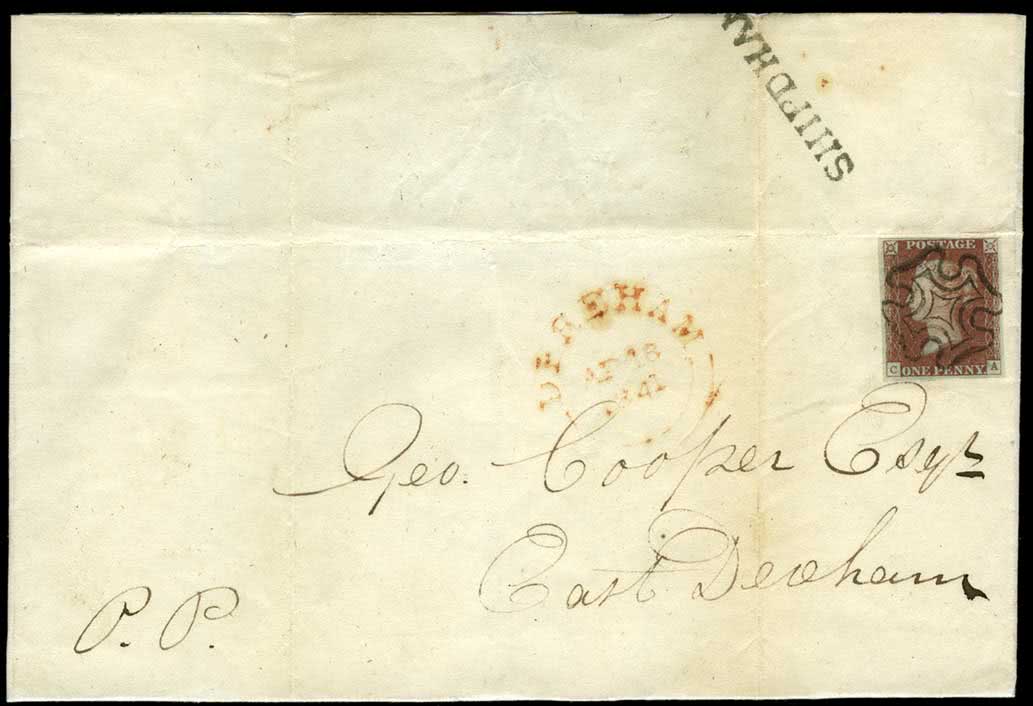 SHIPDHAM
POSTAGE
C ONE PENNY A
DEREHAM
Geo. Cooper Esqr.
East Dereham
P. P.